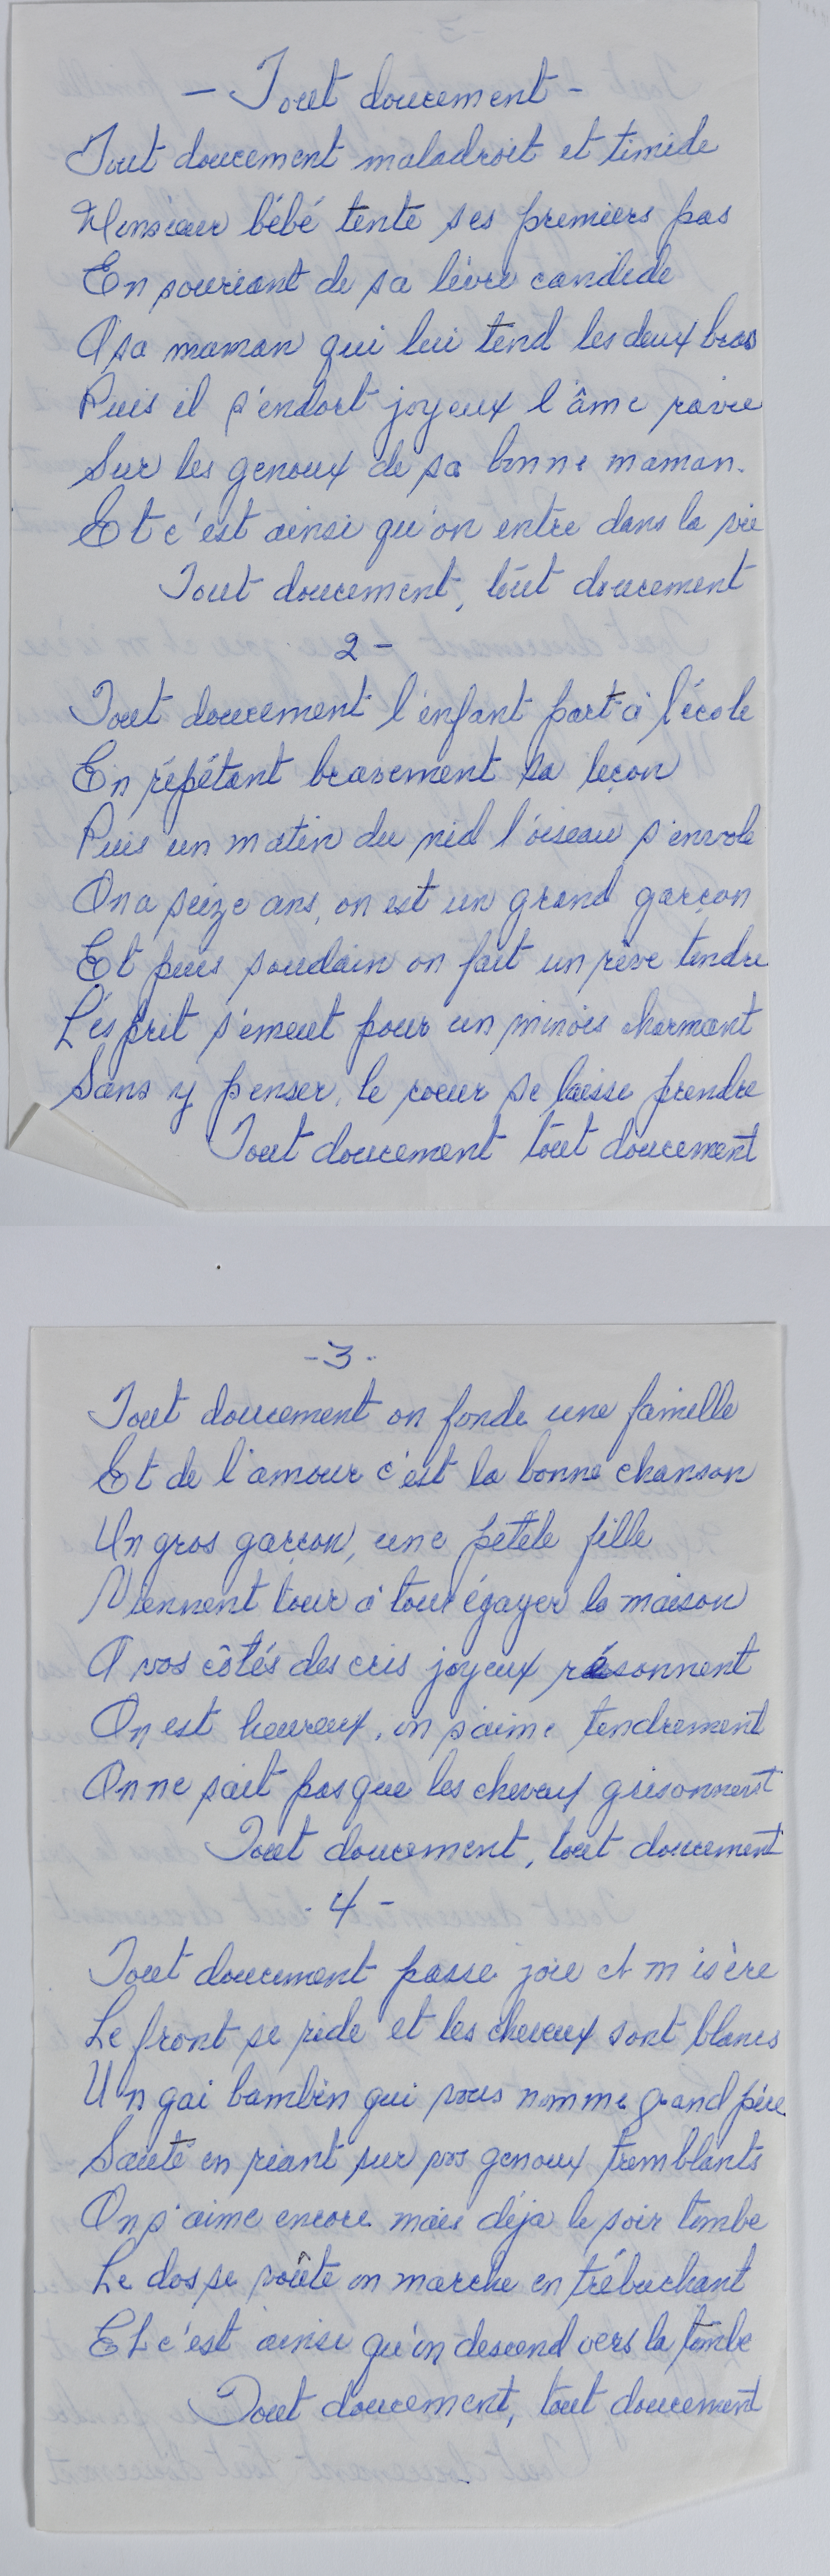 - Tout doucement -
Tout doucement maladroit et timide
Monsieur bébé tente ses premiers pas
En souriant de sa lèvre candide
A sa maman qui lui tend les deux bras
Puis il s'endort joyeux l'âme ravie
Sur les genoux de sa bonne maman.
Et c'est ainsi qu'on entre dans la vie
Tout doucement, tout doucement
2 -
Tout doucement l'enfant part à l'école
En répétant bravement sa leçon
Puis un matin du nid l'oiseau s'envole
On a seize ans, on est un grand garçon
Et puis soudain on fait un rêve tendre
L'esprit s'émeut pour un minois charmant
Sans y penser, le coeur se laisse prendre
Tout doucement tout doucement
- 3 -
Tout doucement on fonde une famille
Et de l'amour c'est la bonne chanson
Un gros garçon, une petite fille
Viennent tour à tour égayer la maison
A vos côtés des cris joyeux résonnent
On est heureux, on s'aime tendrement
On ne sait pas que les cheveux grisonnent
Tout doucement, tout doucement
- 4 -
Tout doucement passe joie et misère
Le front se ride et les cheveux sont blancs
Un gai bambin qui vous nomme grand père
Saute en riant sur vos genoux tremblants
On s'aime encore mais déja le soir tombe
Le dos se voûte on marche en trébuchant
Et c'est ainsi qu'on descend vers la tombe
Tout doucement, tout doucement